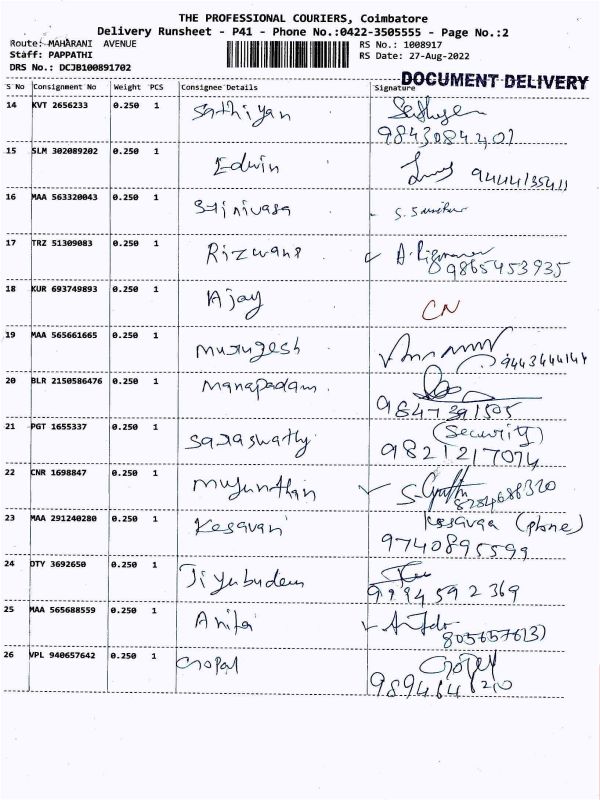 THE PROFESSIONAL COURIERS, Coimbatore
Delivery Runsheet - P41 - Phone No.:0422-3505555 - Page No.:2
Route: MAHARANI AVENUE
RS No.: 1008917
Staff: PAPPATHI
RS Date: 27-Aug-2022
DRS No.: DCJB100891702
DOCUMENT DELIVERY
S No Consignment No Weight PCS Consignee Details Signature
14 KVT 2656233 0.250 1 Sathiyan
9843084401
15 SLM 302089202 0.250 1 Edwin 9444135411
16 MAA 563320043 0.250 1 Srinivasa
17 TRZ 51309083 0.250 1 Rizwana
9865453935
18 KUR 693749893 0.250 1 Ajay CN
19 MAA 565661665 0.250 1 Murugesh 9443444144
20 BLR 2150586476 0.250 1 Manapadam
9847391505
21 PGT 1655337 0.250 1 Saraswathy (Security)
9821217074
22 CNR 1698847 0.250 1
23 MAA 291240280 0.250 1 Kesavan (phone)
9740895599
24 DTY 3692650 0.250 1
9994592369
25 MAA 565688559 0.250 1 Anita
26 VPL 940657642 0.250 1 Gopal Gopal